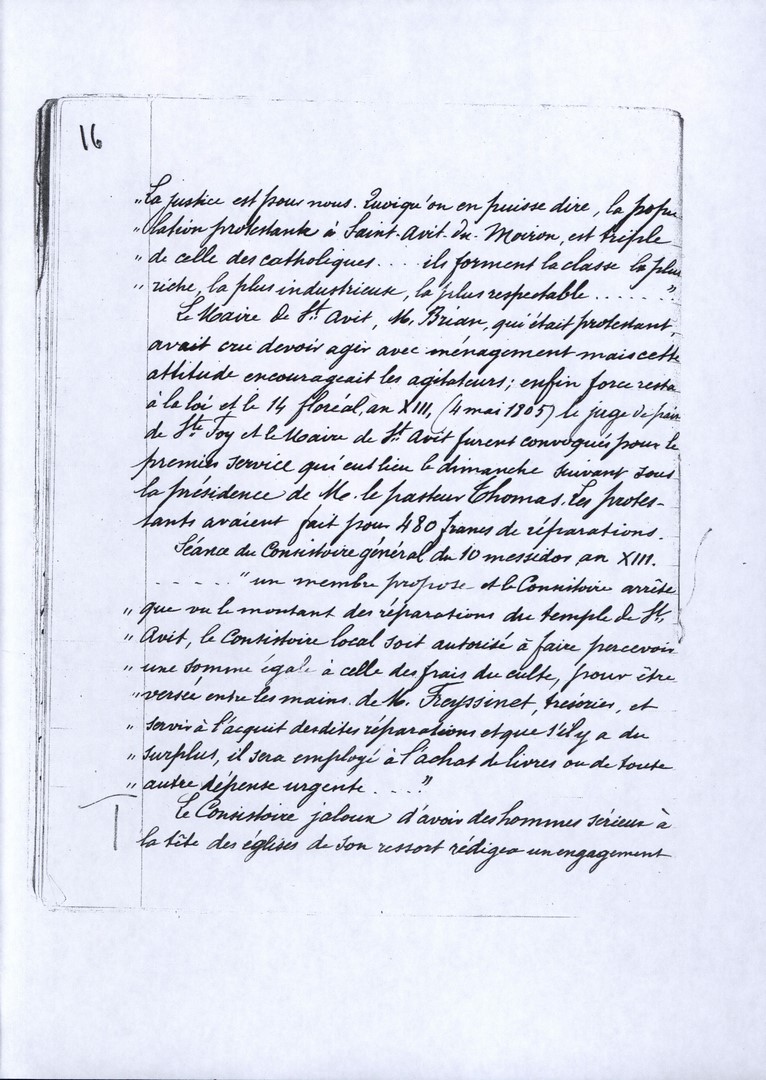 16
„ La justice est pour nous. Quoiqu'on en puisse dire, la popu
„ lation protestante à Saint-Avit-du-Moiron, est triple
„ de celle des catholiques . . . . ils forment la classe la plus
„ riche, la plus industrieuse, la plus respectable . . . . . . "
Le Maire de St. Avit, M. Brian, qui était protestant,
avait cru devoir agir avec ménagement mais cette
attitude encourageait les agitateurs; enfin force resta
à la loi et le 14 floréal, an XIII, (4 mai 1805) le juge de paix
de Ste Foy et le Maire de St. Avit furent convoqués pour le
premier service qui eut lieu le dimanche suivant sous
la présidence de M. le pasteur Thomas. Les protes-
tants avaient fait pour 480 francs de réparations.
Séance du Consistoire général du 10 messidor an XIII.
. - . . . . " un membre propose et le Consistoire arrête
„ que vu le montant des réparations du temple de St.
„ Avit, le Consistoire local soit autorisé à faire percevoir
„ une somme égale à celle des frais du culte, pour être
„ versée entre les mains de M. Freyssinet, trésorier, et
„ servir à l'acquit desdites réparations et que s'il y a du
„ surplus, il sera employé à l'achat de livres ou de toute
„ autre dépense urgente . . . . "
Le Consistoire jaloux d'avoir des hommes sérieux à
la tête des églises de son ressort rédigea un engagement